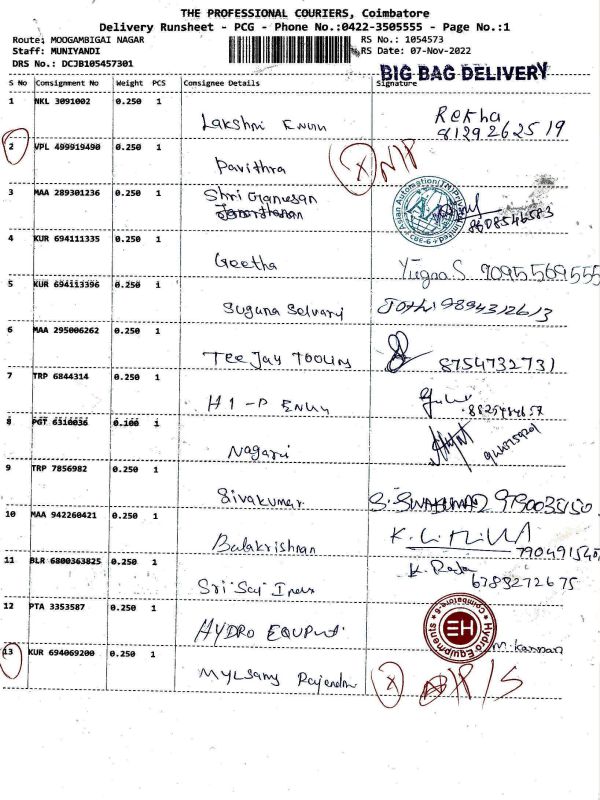 THE PROFESSIONAL COURIERS, Coimbatore
Delivery Runsheet - PCG - Phone No.:0422-3505555 - Page No.:1
Route: MOOGAMBIGAI NAGAR RS No.: 1054573
Staff: MUNIYANDI RS Date: 07-Nov-2022
DRS No.: DCJB105457301
BIG BAG DELIVERY
S No Consignment No Weight PCS Consignee Details Signature
1 NKL 3091002 0.250 1
Lakshmi Rekha
8129262519
2 VPL 499919490 0.250 1
Pavithra X N/P
3 MAA 289301236 0.250 1
Shri Ganesan
8608546583
4 KUR 694111335 0.250 1
Geetha Yugaa S 9095569555
5 KUR 694113396 0.250 1
Suguna Selvaraj Jothi 9894312613
6 MAA 295006262 0.250 1
Tee Jay Tooling 8754732731
7 TRP 6844314 0.250 1
H1-P
8 PGT 6310036 0.100 1
Nagaraj
9 TRP 7856982 0.250 1
Sivakumar S. SIVAKUMAR
10 MAA 942260421 0.250 1
Balakrishnan
11 BLR 6800363825 0.250 1
K. Raja
Sri Sai
12 PTA 3353587 0.250 1
HYDRO
Hydro Equipments
Coimbatore-6
HE
M. Kannan
13 KUR 694069200 0.250 1
Mylsamy X P/S